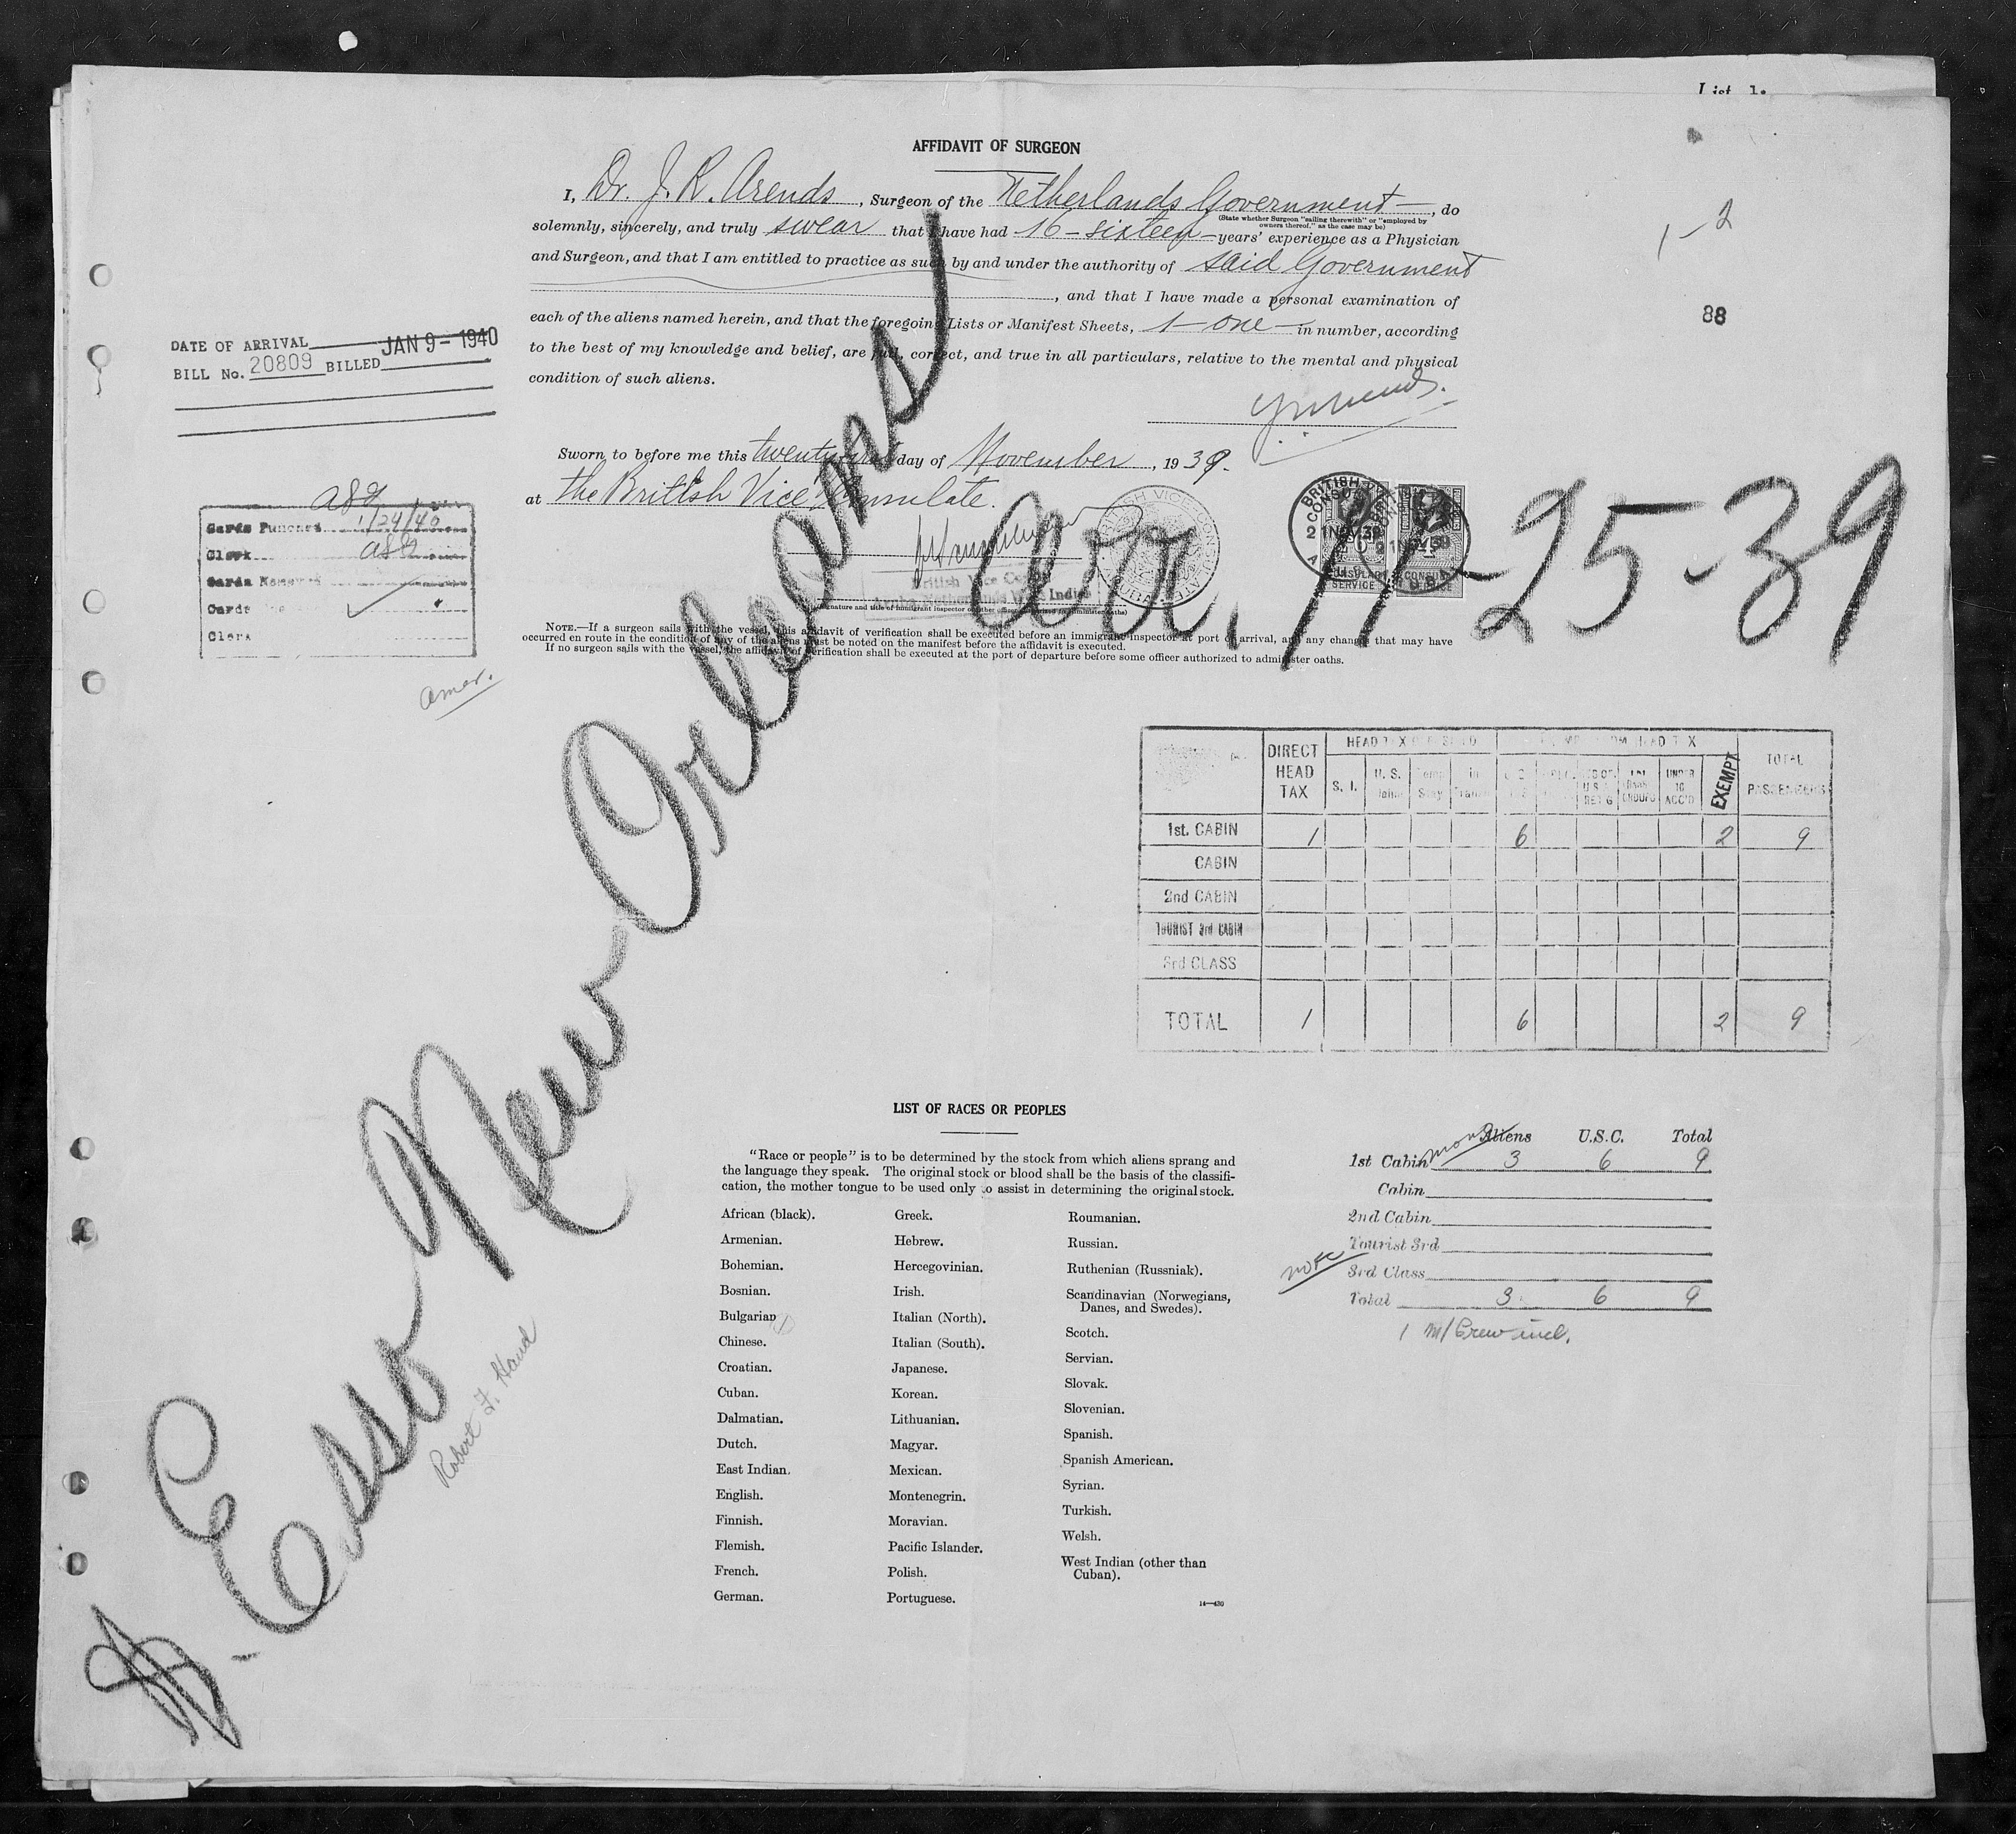 List 1.
AFFIDAVIT OF SURGEON
I, Dr. J. R. Arends, Surgeon of the Netherlands Government —, do
(State whether Surgeon "sailing therewith" or "employed by
owners thereof," as the case may be)
solemnly, sincerely, and truly swear that I have had 16 - sixteen - years' experience as a Physician
and Surgeon, and that I am entitled to practice as such by and under the authority of said Government
, and that I have made a personal examination of
each of the aliens named herein, and that the foregoing Lists or Manifest Sheets, 1 - one - in number, according
to the best of my knowledge and belief, are full, correct, and true in all particulars, relative to the mental and physical
condition of such aliens.
1 - 2
88
DATE OF ARRIVAL JAN 9 - 1940
BILL No. 20809 BILLED
Sworn to before me this twenty first day of November, 1939.
at the British Vice Consulate.
BRITISH VICE-CONSULATE
ARUBA
British Vice Consul
Aruba Netherlands West Indies
CONSULAR SERVICE
CONSULAR SERVICE
Cards Punched 1/24/40
Clerk
Cards
Clerk
amer.
NOTE.—If a surgeon sails with the vessel, this affidavit of verification shall be executed before an immigrant inspector at port of arrival, and any changes that may have
occurred en route in the condition of any of the aliens must be noted on the manifest before the affidavit is executed.
If no surgeon sails with the vessel, the affidavit of verification shall be executed at the port of departure before some officer authorized to administer oaths.
Arr. 11-25-39
Esso New Orleans
Robert F. Hand
DIRECT HEAD TAX
S. I.
U. S.
EXEMPT
TOTAL PASSENGERS
1st. CABIN 1 6 2 9
CABIN
2nd CABIN
TOURIST 3rd CABIN
3rd CLASS
TOTAL 1 6 2 9
LIST OF RACES OR PEOPLES
"Race or people" is to be determined by the stock from which aliens sprang and
the language they speak. The original stock or blood shall be the basis of the classifi-
cation, the mother tongue to be used only to assist in determining the original stock.
African (black).
Armenian.
Bohemian.
Bosnian.
Bulgarian
Chinese.
Croatian.
Cuban.
Dalmatian.
Dutch.
East Indian.
English.
Finnish.
Flemish.
French.
German.
Greek.
Hebrew.
Hercegovinian.
Irish.
Italian (North).
Italian (South).
Japanese.
Korean.
Lithuanian.
Magyar.
Mexican.
Montenegrin.
Moravian.
Pacific Islander.
Polish.
Portuguese.
Roumanian.
Russian.
Ruthenian (Russniak).
Scandinavian (Norwegians,
Danes, and Swedes).
Scotch.
Servian.
Slovak.
Slovenian.
Spanish.
Spanish American.
Syrian.
Turkish.
Welsh.
West Indian (other than
Cuban).
14—430
Aliens U.S.C. Total
1st Cabin 3 6 9
Cabin
2nd Cabin
Tourist 3rd
note
3rd Class
Total 3 6 9
1 M/Crew incl.